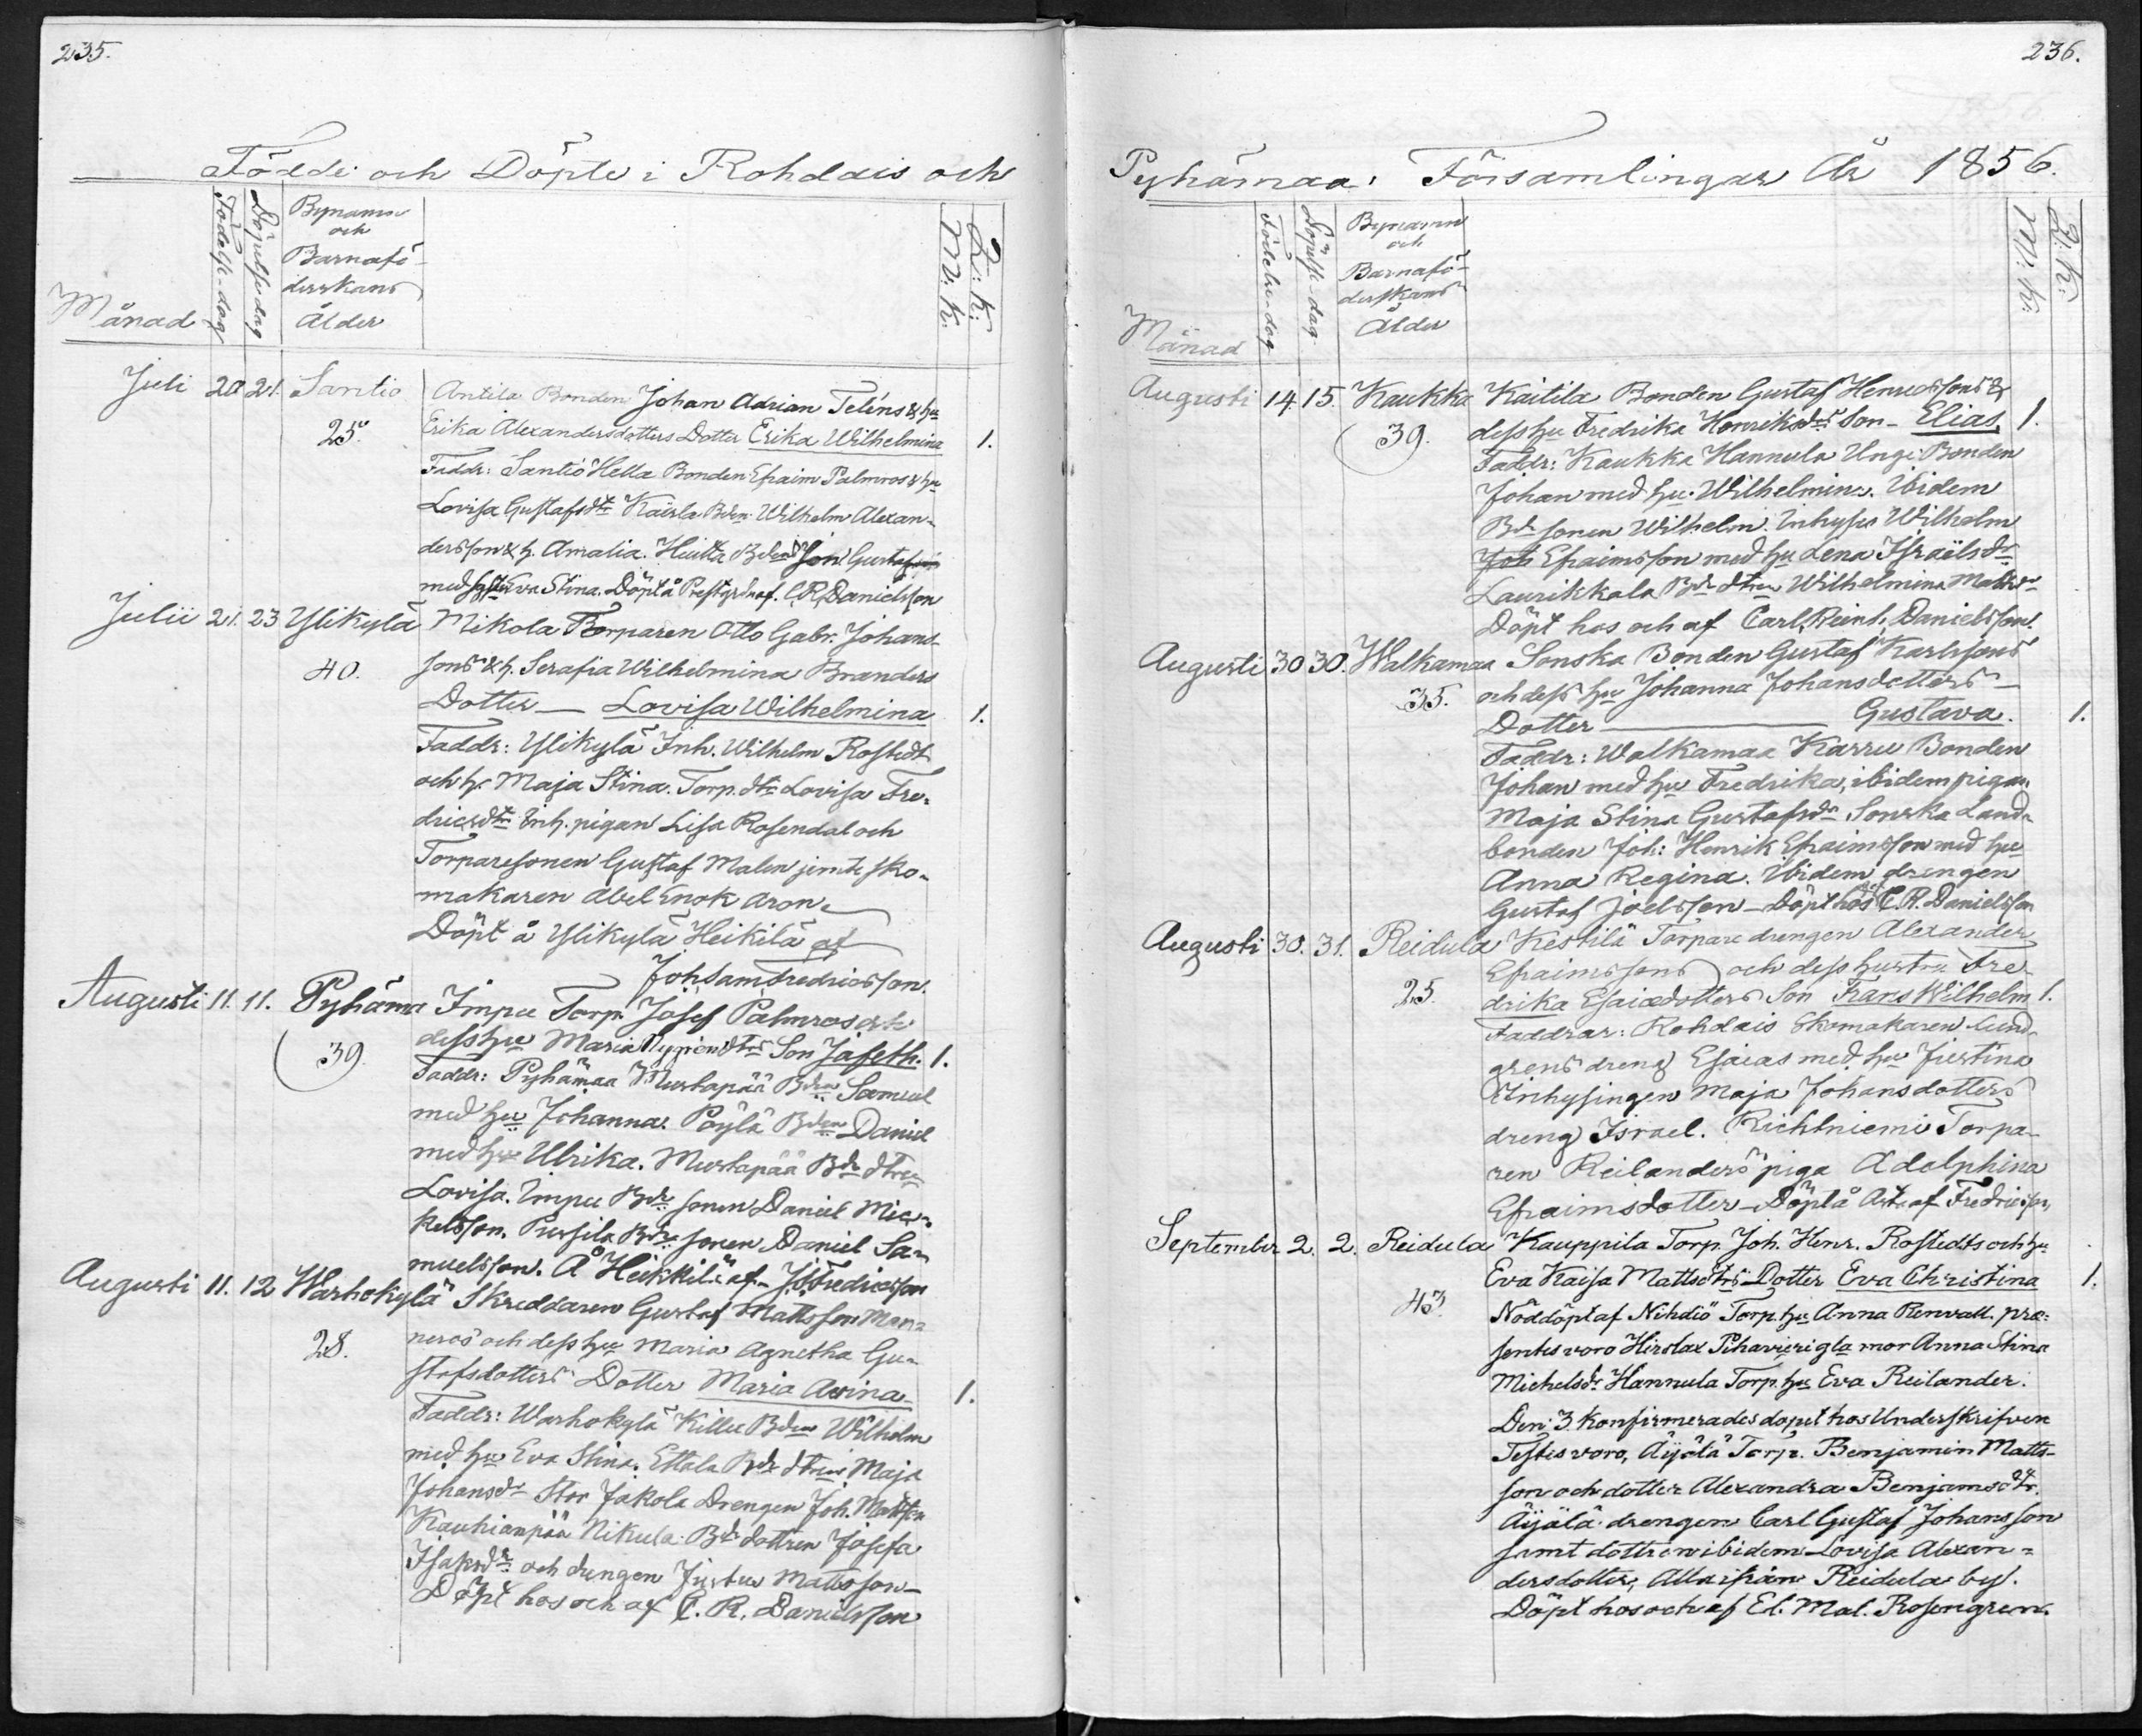 235.
Födde och Döpte i Rohdais och
Månad
Födelse-dag
Döpelse dag
Bynamn
och
Barnafö-
derskans
Ålder
M: K:
Q: K:
Juli 20 21. Santio Antila Bonden Johan Adrian Teléns & hu
25. Erika Alexandersdotters Dotter Erika Wilhelmina 1.
Faddr: Santio Hella Bonden Efraim Palmros & hu
Lovisa Gustafsdtr Kaisla Bden Wilhelm Alexan-
dersson & h. Amalia. Heikkilä Bdens Son Gustaf
med Eva Stina. Döpt å Prestgrd af C.R. Danielsson
Julii 21. 23 Ylikylä Mikola Torparen Otto Gabr. Johans-
40. sons & h. Serafia Wilhelmina Branders
Dotter — Lovisa Wilhelmina 1.
Faddr: Ylikylä Inh. Wilhelm Rostedt
och h. Maja Stina. Torp. dtr Lovisa Fre-
dricsdtr Inh. pigan Lisa Rosendal och
Torparesonen Gustaf Malen jemte sko-
makaren Abel Enok Aron.
Döpt å Ylikylä Heikilä af
Joh Sam Fredricsson.
Augusti 11. 11. Pyhäma Impu Torp. Josef Palmros och
39. dess hu Maria Nygrendtrs Son Jafeth. 1.
Faddr: Pyhämaa Mustapää Bden Samuel
med hu Johanna. Pöylä Bden Daniel
med hu Ulrika. Mustapää Bde dtren
Lovisa. Impu Bde sonen Daniel Mic-
kelsson. Pursila Bde sonen Daniel Sa-
muelsson. Å Heikkilä af J.S. Fredricsson
Augusti 11. 12 Warhokylä Skreddaren Gustaf Mattsson Man-
28. neros och dess hu Maria Agnetha Gu-
stafsdotters Dotter Maria Avina 1.
Faddr: Warhokylä Killu Bden Wilhelm
med hu Eva Stina. Ettala Bde dtren Maja
Johansdr Stor Jakola Drengen Joh. Mattsson
Kauhianpää Nikula Bde dottren Josefa
Isaksdr och drengen Justus Mattsson
Döpt hos och af C. R. Danielsson
236.
Pyhämaa Församlingar År 1856.
Månad
Födelse-dag
Döpelse-dag
Bynamn
och
Barnafö-
derskans
Ålder
M: K:
Q: K:
Augusti 14. 15. Kaukka Kaitila Bonden Gustaf Henricssons &
39. dess hu Fredrika Henriksdrs Son - Elias. 1.
Faddr: Kaukka Hannula Unge Bonden
Johan med hu Wilhelmina. Ibidem
Bde sonen Wilhelm. Inhyses Wilhelm
Joh Efraimsson med hu Lena Israëlsdr
Laurikkala Bde dtren Wilhelmina Mattsdr
Döpt hos och af Carl Reinh. Danielsson.
Augusti 30 30. Walkamaa Sonska Bonden Gustaf Karlssons
35. och dess hu Johanna Johansdotters
Dotter — Gustava. 1.
Faddr: Walkamaa Karru Bonden
Johan med hu Fredrika, ibidem pigan
Maja Stina Gustafsdr Sonska Land-
bonden Joh: Henrik Efraimsson med hu
Anna Regina. Ibidem drengen
Gustaf Joelsson - Döpt hos C.R. Danielsson
Augusti 30. 31. Reidula Kestilä Torpare drengen Alexander
Efraimssons och dess hustru Fre-
25. drika Esaiædotters Son Frans Wilhelm 1.
Faddrar: Rohdais Skomakaren Lund-
grens dreng Esaias med hu Justina
Inhysingen Maja Johansdotters
dreng Israel. Richtniemi Torpa-
ren Reilanders piga Adolphina
Efraimsdotter - Döpt å af Fredricsson
September 2. 2. Reidula Kauppila Torp. Joh. Henr. Rostedts och hu
Eva Kaisa Mattsdtrs Dotter Eva Christina 1.
43. Nöddöpt af Nihdiö Torp. hu Anna Renvall. præ-
sentes voro Hirslax Pihavieri gla mor Anna Stina
Michelsdr Hannula Torp. hu Eva Reilander.
Den 3 konfirmerades dopet hos Underskrifven
Testes voro, Äyälä Torp. Benjamin Matts-
son och dotter Alexandra Benjamsdtr.
Äyälä drengen Carl Gustaf Johansson
samt dottren ibidem Lovisa Alexan-
dersdotter, Alla ifrån Reidula by.
Döpt hos och af El. Mal. Rosengren.